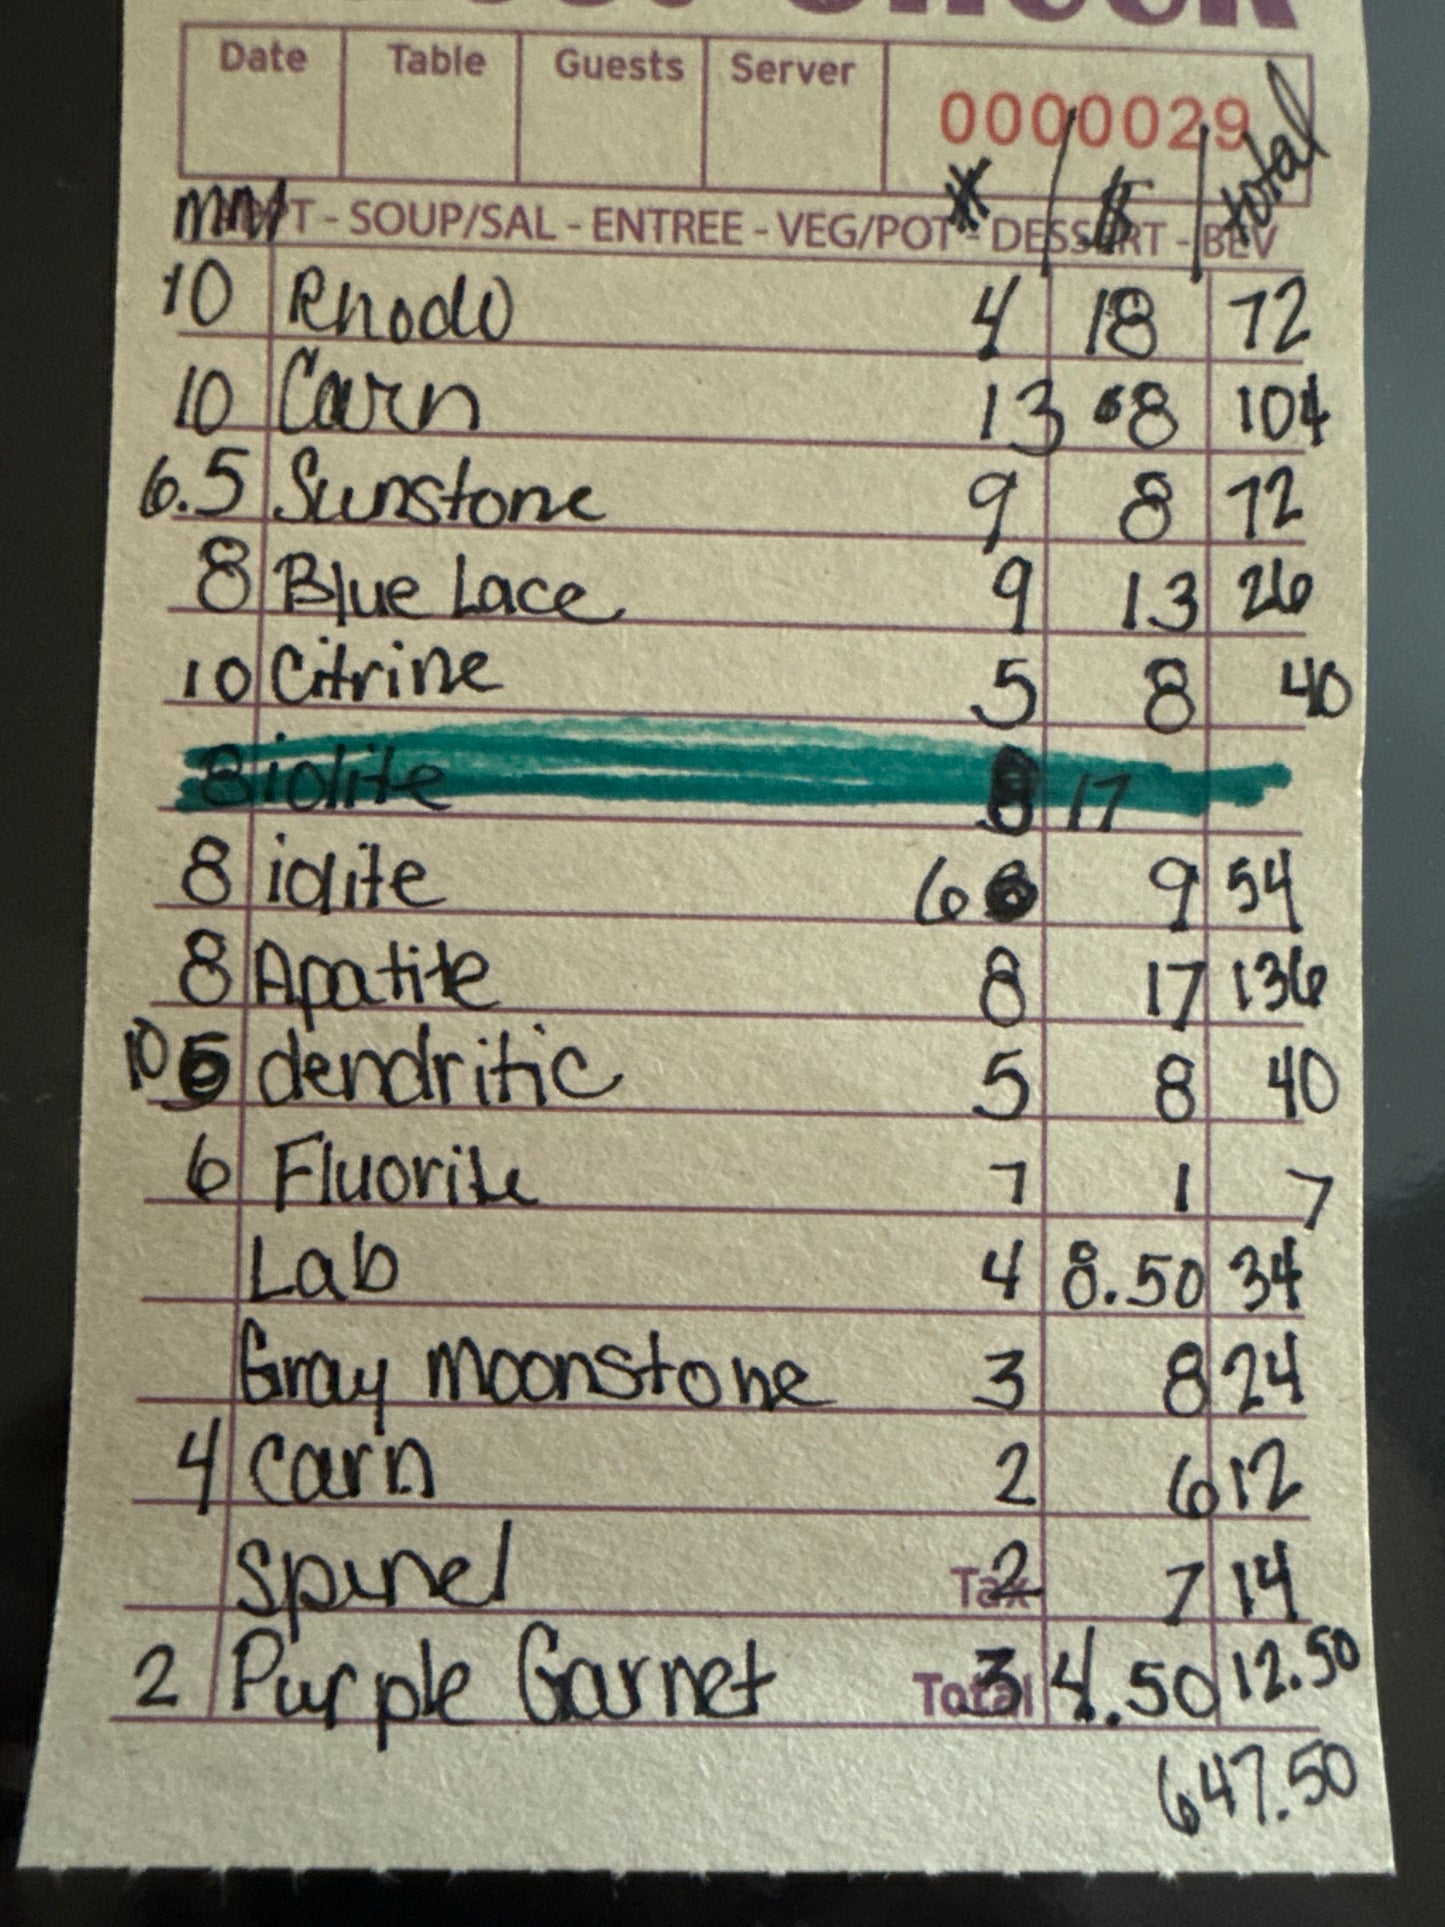 Guest Check
Date Table Guests Server 0000029
mm APPT - SOUP/SAL - ENTREE - VEG/POT - DESSERT - BEV # $ total
10 Rhodo 4 18 72
10 Carn 13 8 104
6.5 Sunstone 9 8 72
8 Blue Lace 9 13 26
10 Citrine 5 8 40
8 iolite 8 17
8 iolite 6 9 54
8 Apatite 8 17 136
10 dendritic 5 8 40
6 Fluorite 7 1 7
Lab 4 8.50 34
Gray moonstone 3 8 24
4 Carn 2 6 12
Spinel Tax 2 7 14
2 Purple Garnet Total 3 4.50 12.50
647.50